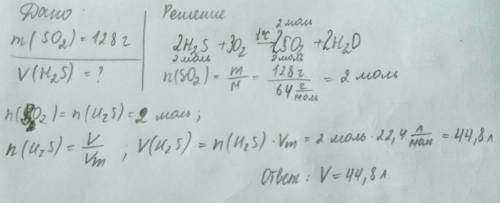 Дано:
m(SO₂) = 128 г
V(H₂S) = ?
Решение
2 моль
2H₂S + 3O₂ = 2SO₂ + 2H₂O
2 моль 2 моль
n(SO₂) = m/M = 128 г / 64 г/моль = 2 моль
n(SO₂) = n(H₂S) = 2 моль;
n(H₂S) = V/Vm ; V(H₂S) = n(H₂S) · Vm = 2 моль · 22,4 л/моль = 44,8 л
Ответ: V = 44,8 л